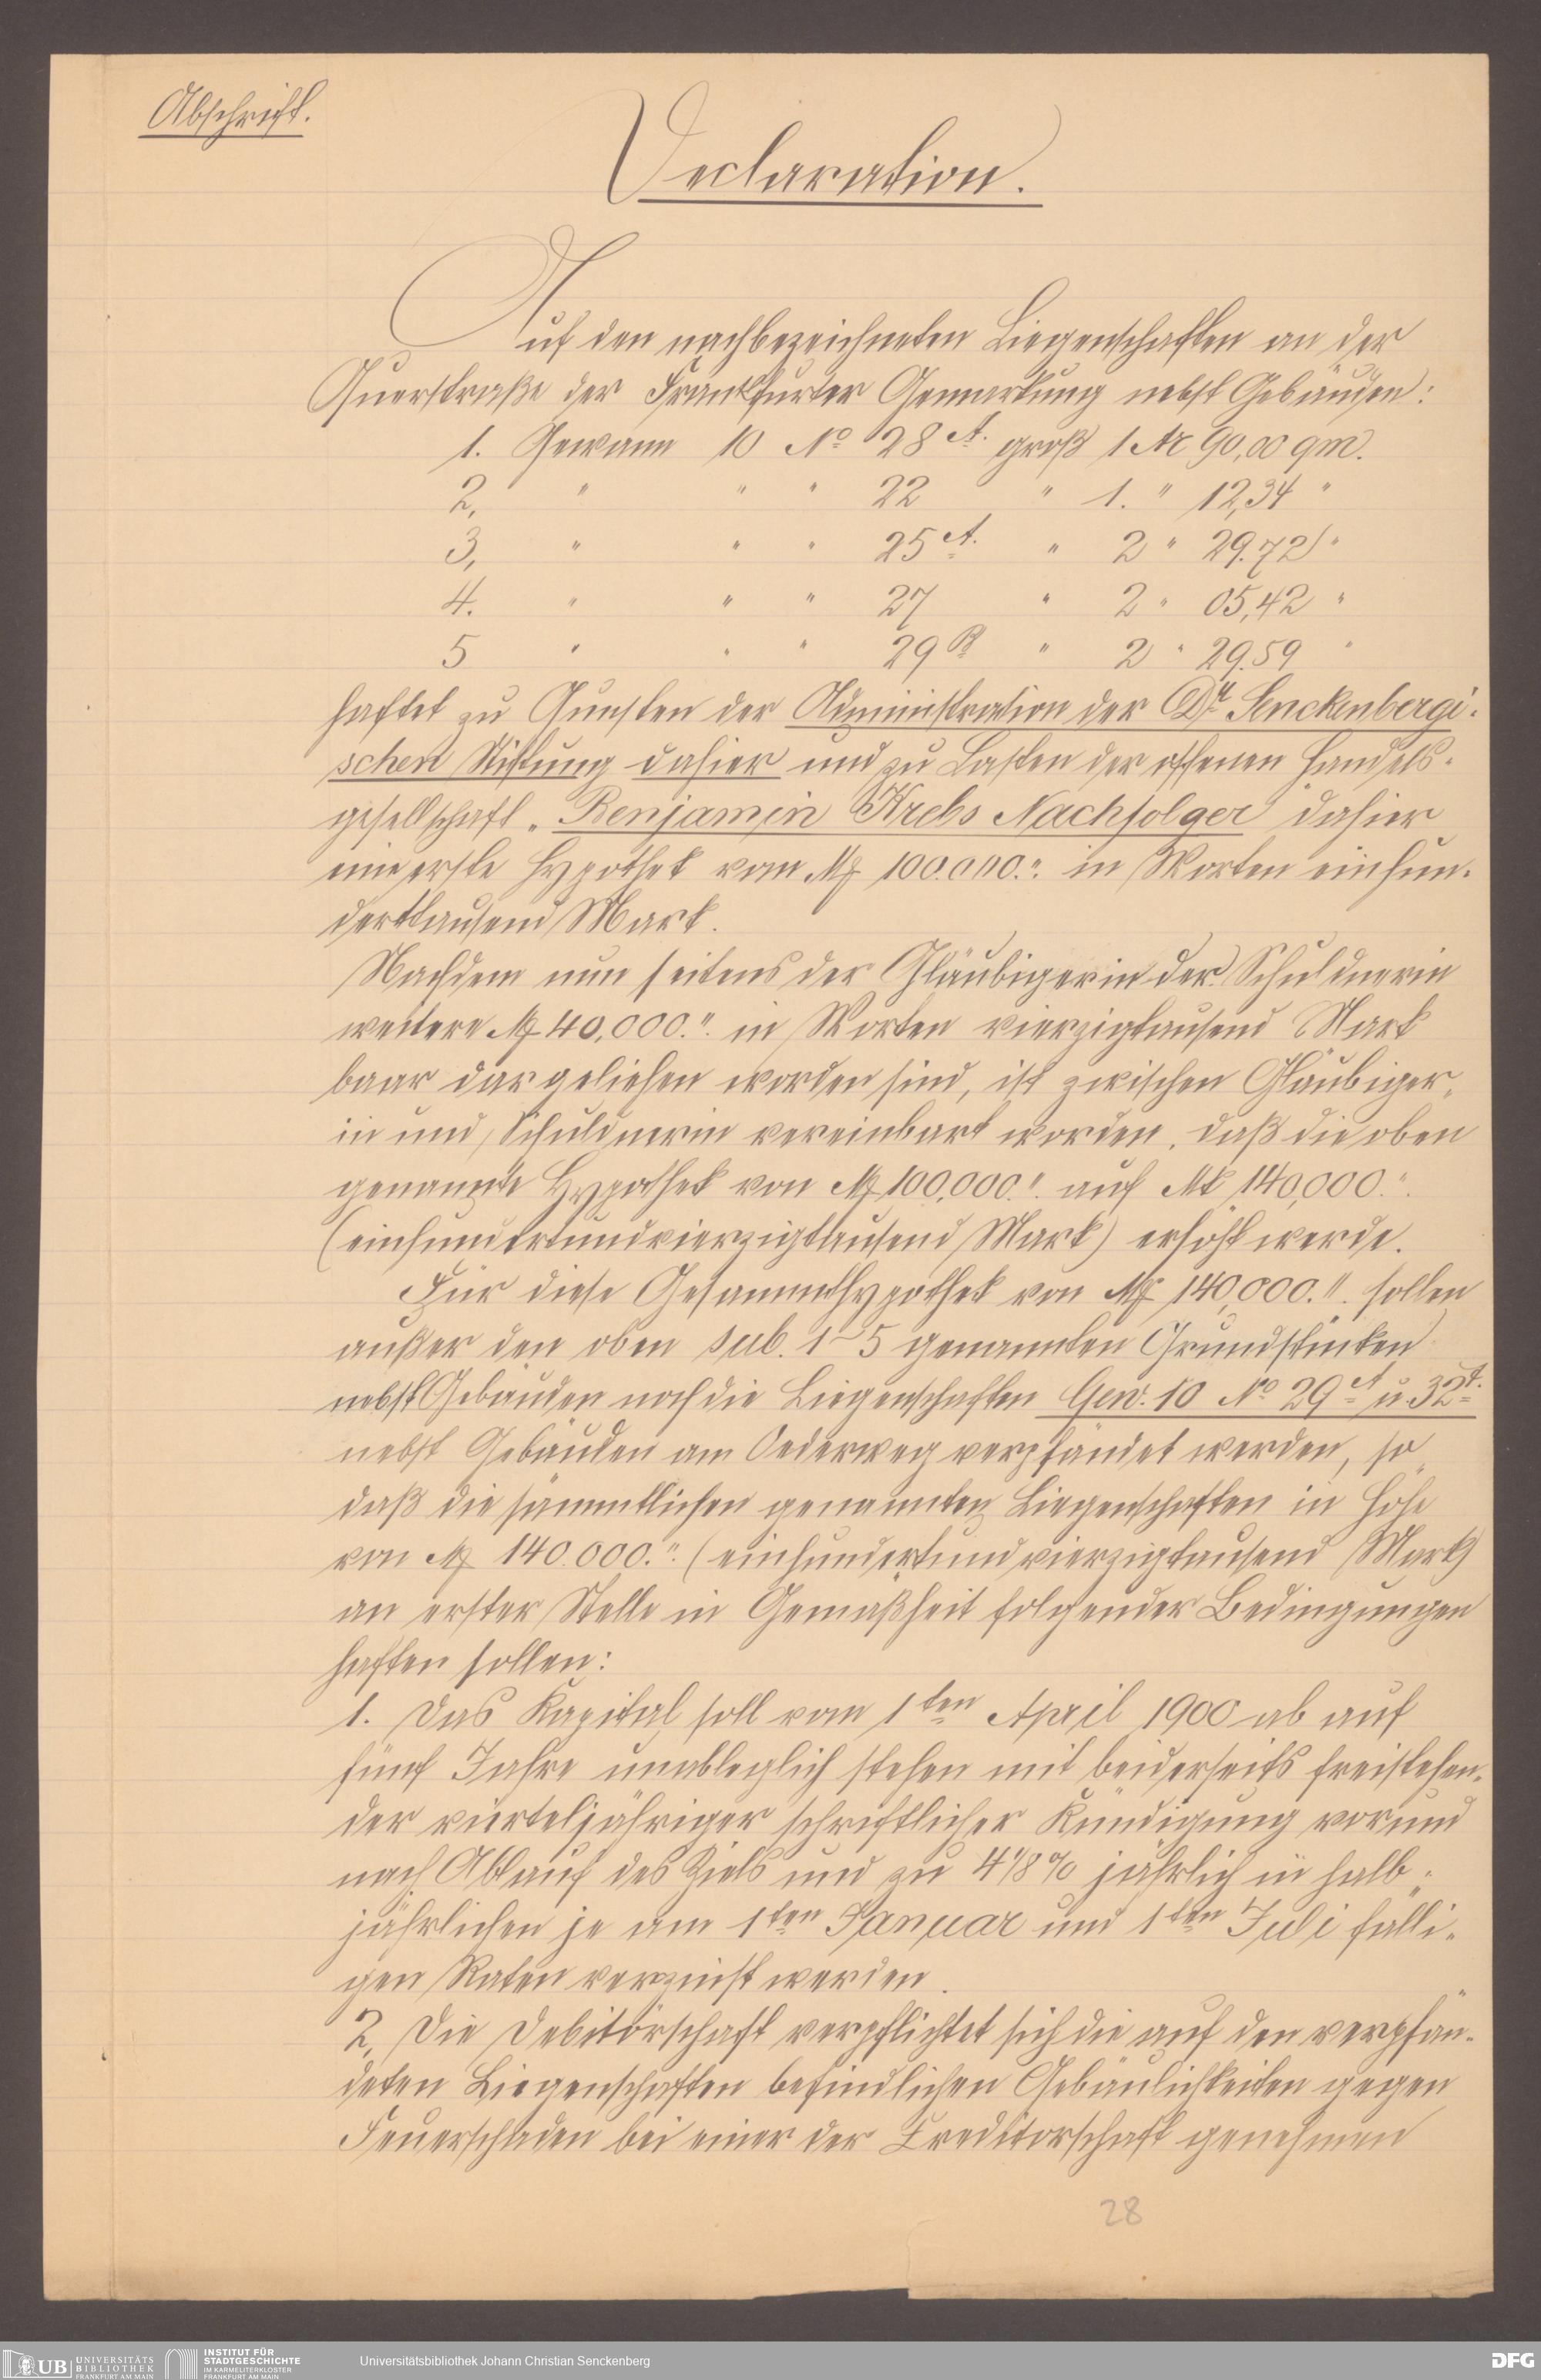 Abschrift.
Declaration.
Auf den nachbezeichneten Liegenschaften an der
Querstraße der Frankfurter Gemarkung nebst Gebäuden:
1. Gewann 10 No 28 A. groß 1 Ar 90,00 qm.
2, " " " 22 " 1. " 12,34 "
3, " " " 25 A. " 2 " 29.72 "
4. " " " 27 " 2 " 05,42 "
5 " " " 29 B " 2 " 29.59 "
haftet zu Gunsten der Administration der Dr. Senckenbergi-
schen Stiftung dahier und zu Lasten der offenen Handels-
gesellschaft „Benjamin Krebs Nachfolger" dahier
eine erste Hypothek von M 100.000.". in Worten einhun-
derttausend Mark.
Nachdem nun seitens der Gläubigerin der Schuldnerin
weitere M 40,000.". in Worten vierzigtausend Mark
baar dargeliehen worden sind, ist zwischen Gläubiger-
in und Schuldnerin vereinbart worden, daß die oben
genannte Hypothek von M 100,000.". auf Mk 140,000.".
(einhundertundvierzigtausend Mark) erhöht werde.
Für diese Gesammthypothek von M 140,000.". sollen
außer den oben sub. 1-5 genannten Grundstücken
nebst Gebäuden noch die Liegenschaften Gew. 10 No 29 A u. 32 A.
nebst Gebäuden am Oederweg verpfändet werden, so-
daß die sämmtlichen genannten Liegenschaften in Höhe
von M 140.000.". (einhundertundvierzigtausend Mark)
an erster Stelle in Gemäßheit folgender Bedingungen
haften sollen:
1. Das Kapital soll vom 1ten April 1900 ab auf
fünf Jahre unableglich stehen mit beiderseits freistehen-
der vierteljähriger schriftlicher Kündigung vor und
nach Ablauf des Ziels und zu 4 1/8 % jährlich in halb-
jährlichen je am 1ten Januar und 1ten Juli fälli-
gen Raten verzinst werden.
2, Die Debitorschaft verpflichtet sich die auf den verpfän-
deten Liegenschaften befindlichen Gebäulichkeiten gegen
Feuerschaden bei einer der Creditorschaft genehmen
28
UB UNIVERSITÄTS BIBLIOTHEK FRANKFURT AM MAIN
INSTITUT FÜR STADTGESCHICHTE IM KARMELITERKLOSTER FRANKFURT AM MAIN
Universitätsbibliothek Johann Christian Senckenberg
DFG